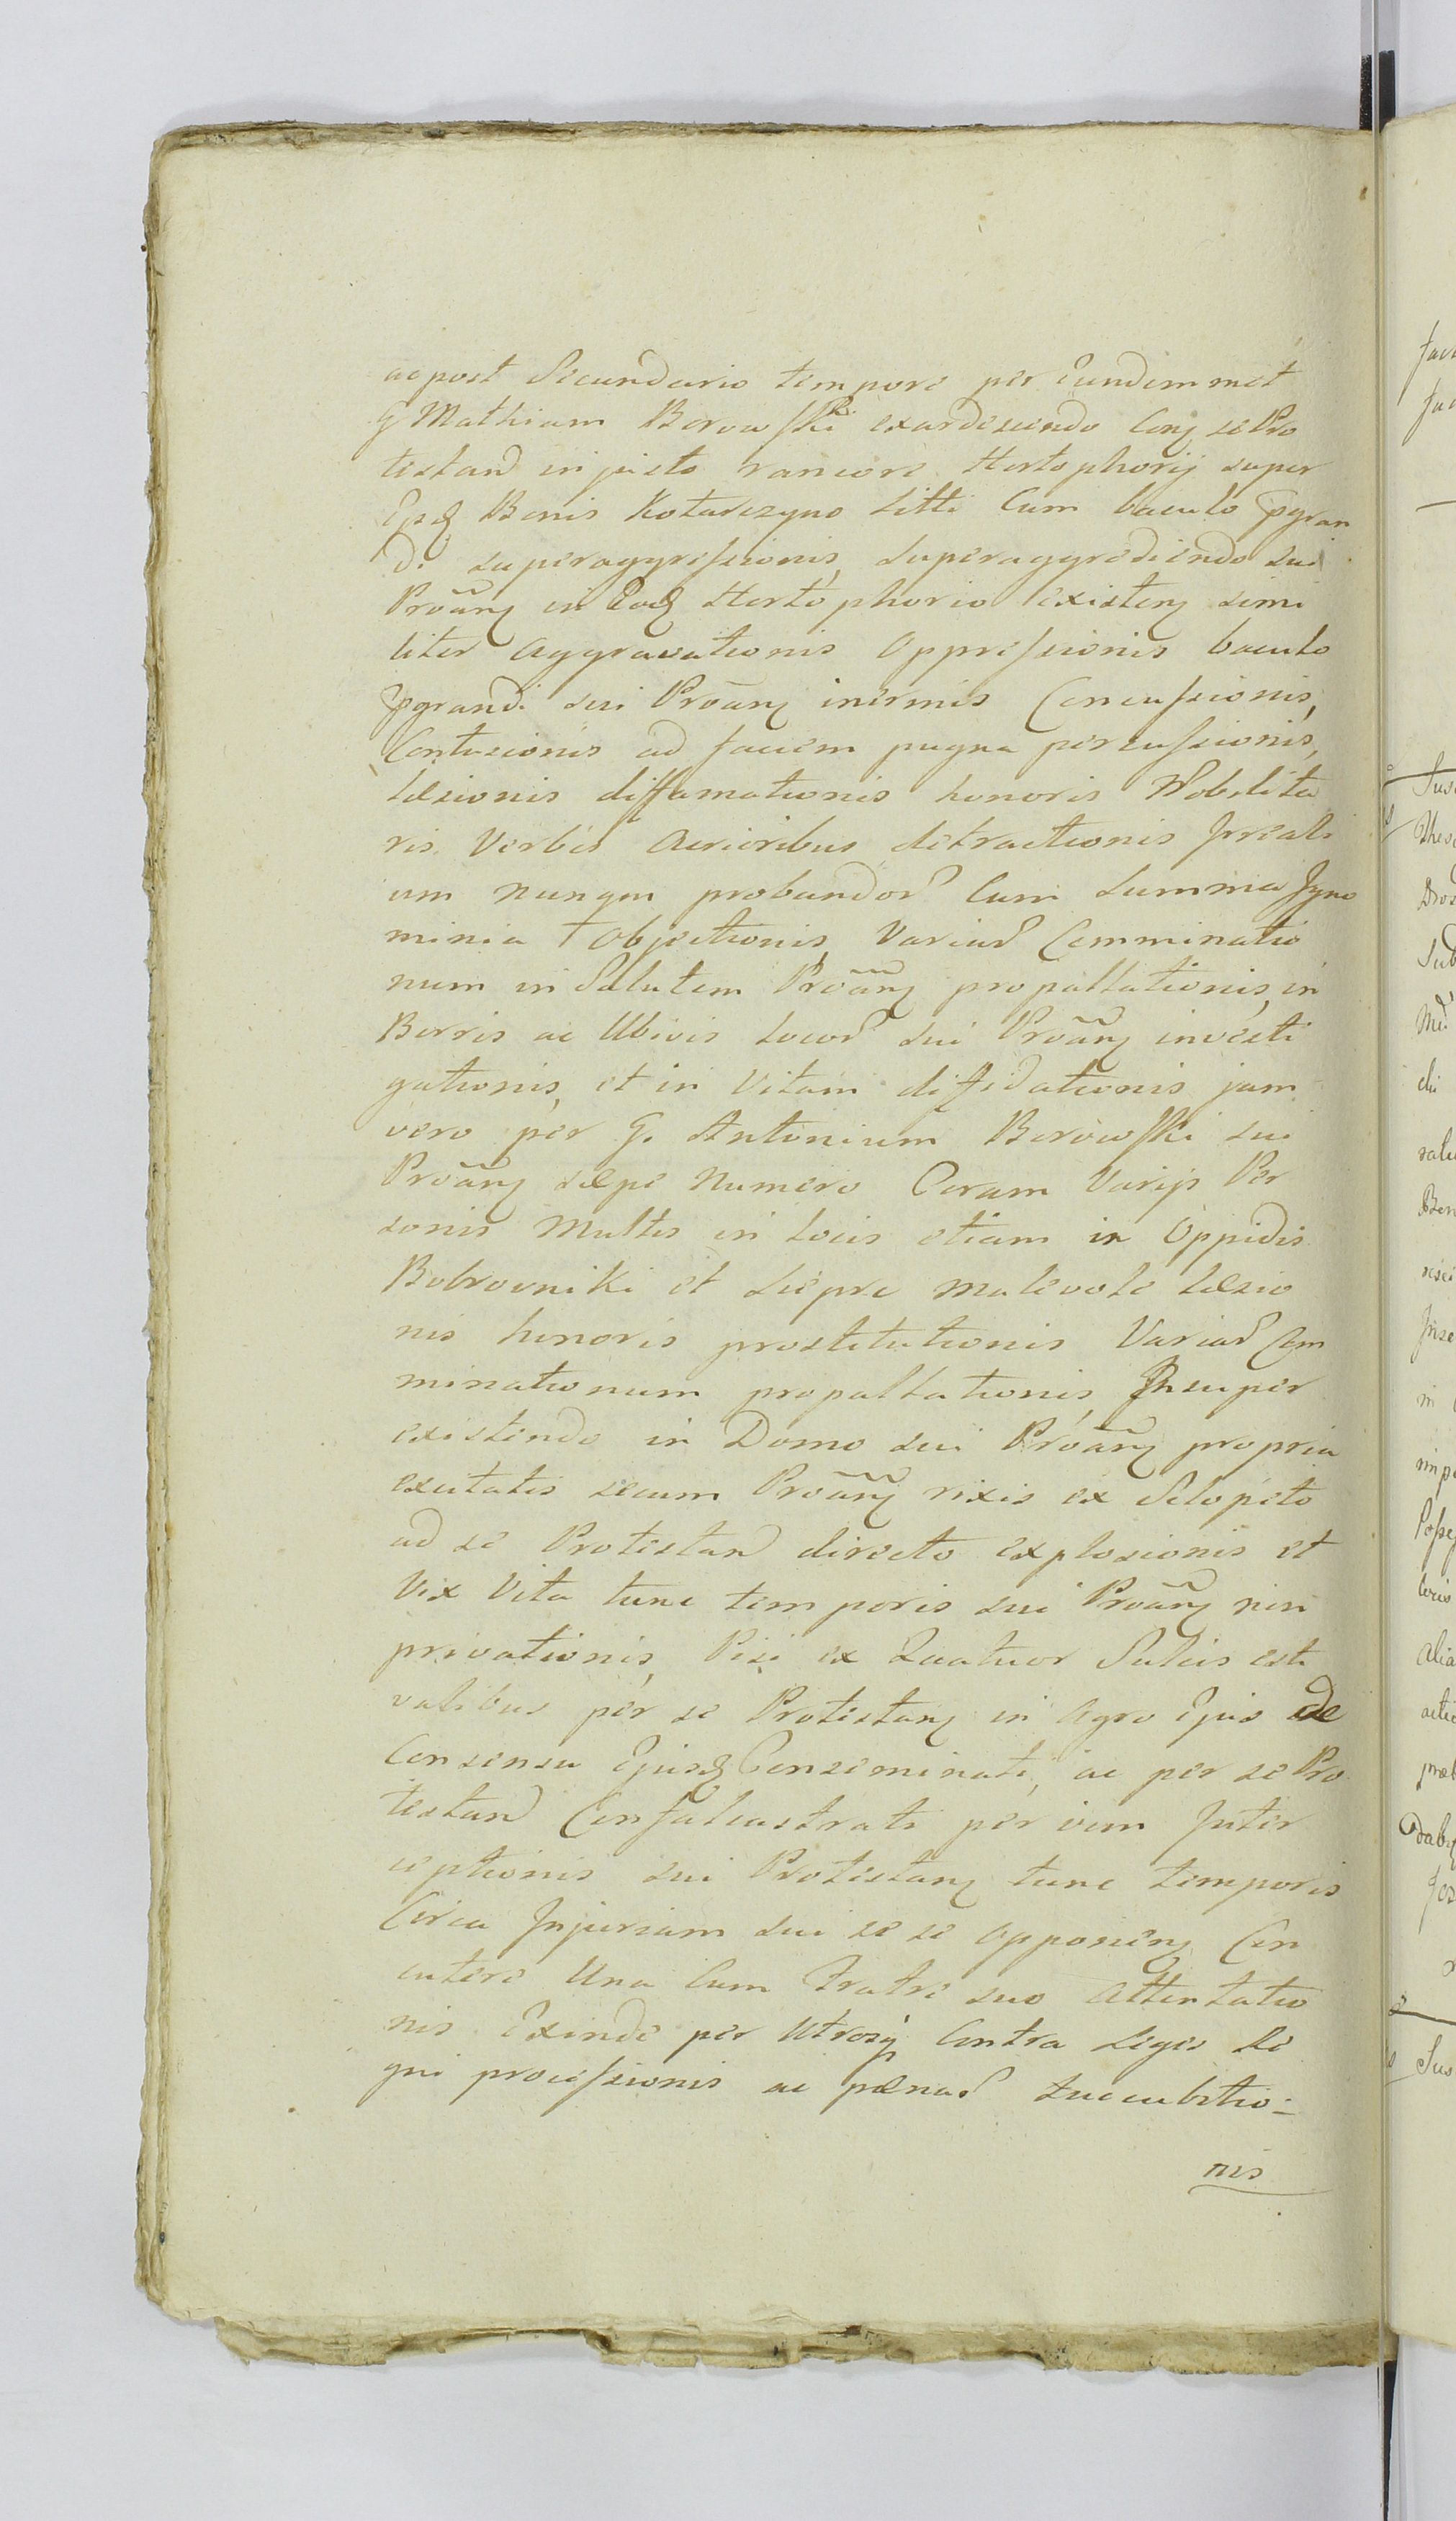 ac post Secundario tempore per Eundemmet
G Mathiam Borowski exardescendo Conq se Pro
testand injusto rancore Hortophorij super
Ejsdq Bonis Kotarczyno Sitti Cum baculo pgran
di superaggressionis, superaggrediendo sui
Protãnq in Eodq Hortophorio existenq simi
liter aggravationis Oppressionis baculo
pgrandi sui Protãnq inermis Concussionis,
Contusionis ad faciem pugna percussionis,
læsionis diffamationis honoris Nobilita
ris Verbis Acrioribus detractionis Irreali
um nunqm probandor Cum Summa Igno
minia Objectionis, Variar Comminatio
num in Salutem Protãnq propallationis, in
Borris ac Ubivis locor sui Protãnq investi
gationis, et in Vitam diffidationis jam
vero per G. Antonium Borowski sui
Protãnq sæpe Numero Coram Varijs Per
sonis Multis in locis etiam in Oppidis
Bobrowniki et Liepre malevole læsio
nis honoris prostitutionis Variar Com
minationum propallationis, Insuper
existendo in Domo sui Protãnq propria
exitatis secum Protãnq rixis ex Sclopeto
ad se Protestand directo explosionis et
Vix Vita tunc temporis sui Protãnq non
privationis, Pisi ex Quatuor Sulcis esti
valibus per se Protestanq in Agro Ejus de
Consensu Ejusdq Conseminati, ac per se Pro
testand Confalcastrati per vim Inter
ceptionis sui Protestanq tunc temporis
Circa Injuriam sui se se opponenq Con
cutere Una Cum Fratre suo Attentatio
nis Exinde per Utrosq Contra Leges Re
gni processionis ac pænar succubitio=
nis